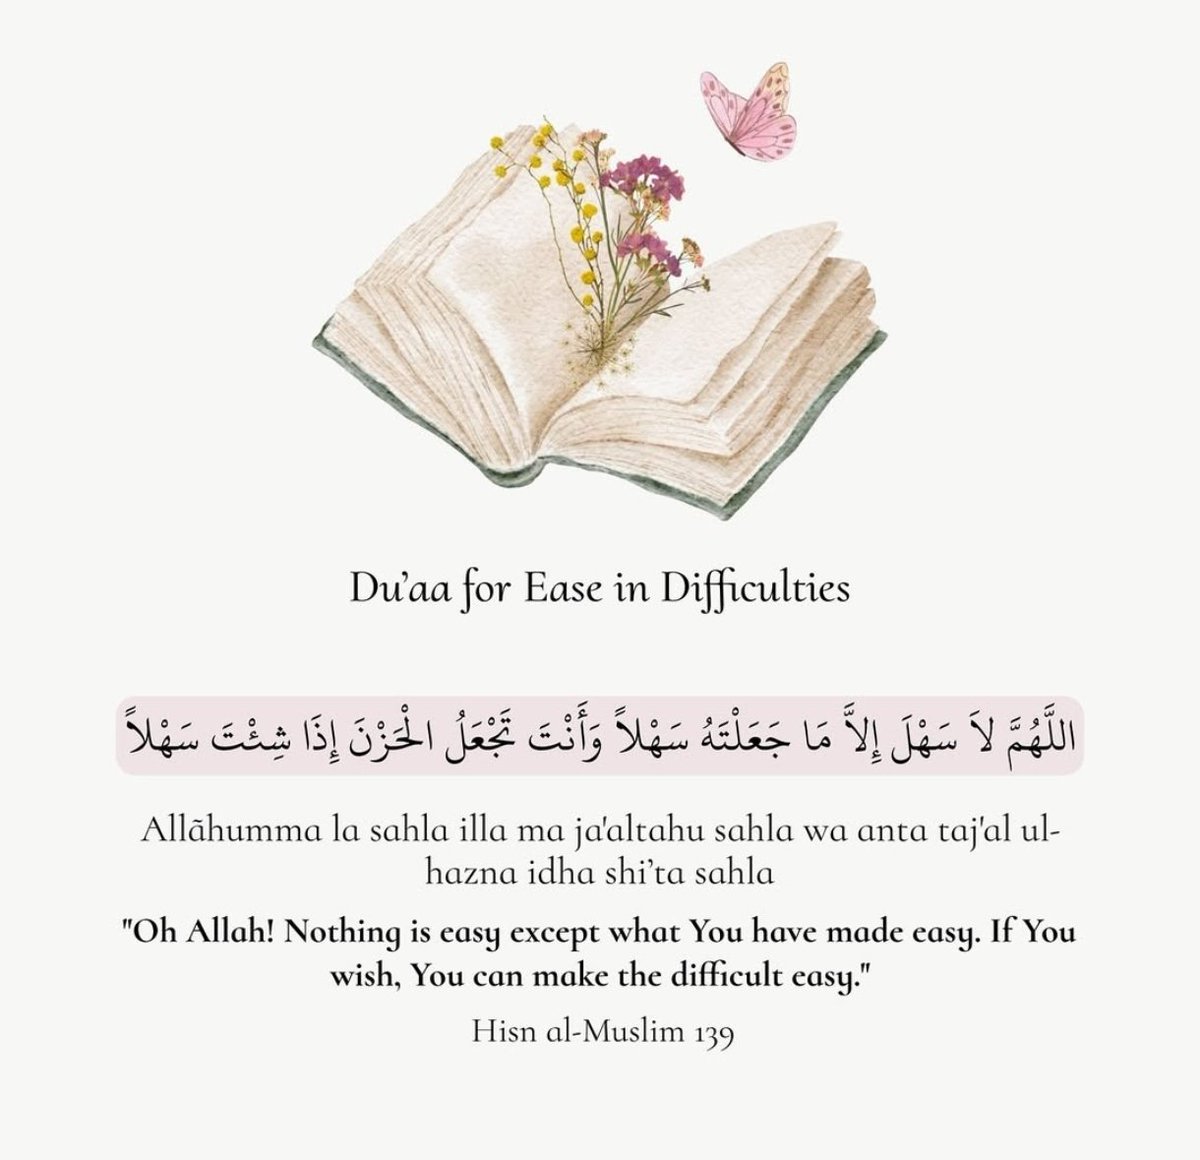 Du’aa for Ease in Difficulties
اللَّهُمَّ لاَ سَهْلَ إِلاَّ مَا جَعَلْتَهُ سَهْلاً وَأَنْتَ تَجْعَلُ الْحَزْنَ إِذَا شِئْتَ سَهْلاً
Allãhumma la sahla illa ma ja'altahu sahla wa anta taj'al ul-
hazna idha shi’ta sahla
"Oh Allah! Nothing is easy except what You have made easy. If You
wish, You can make the difficult easy."
Hisn al-Muslim 139